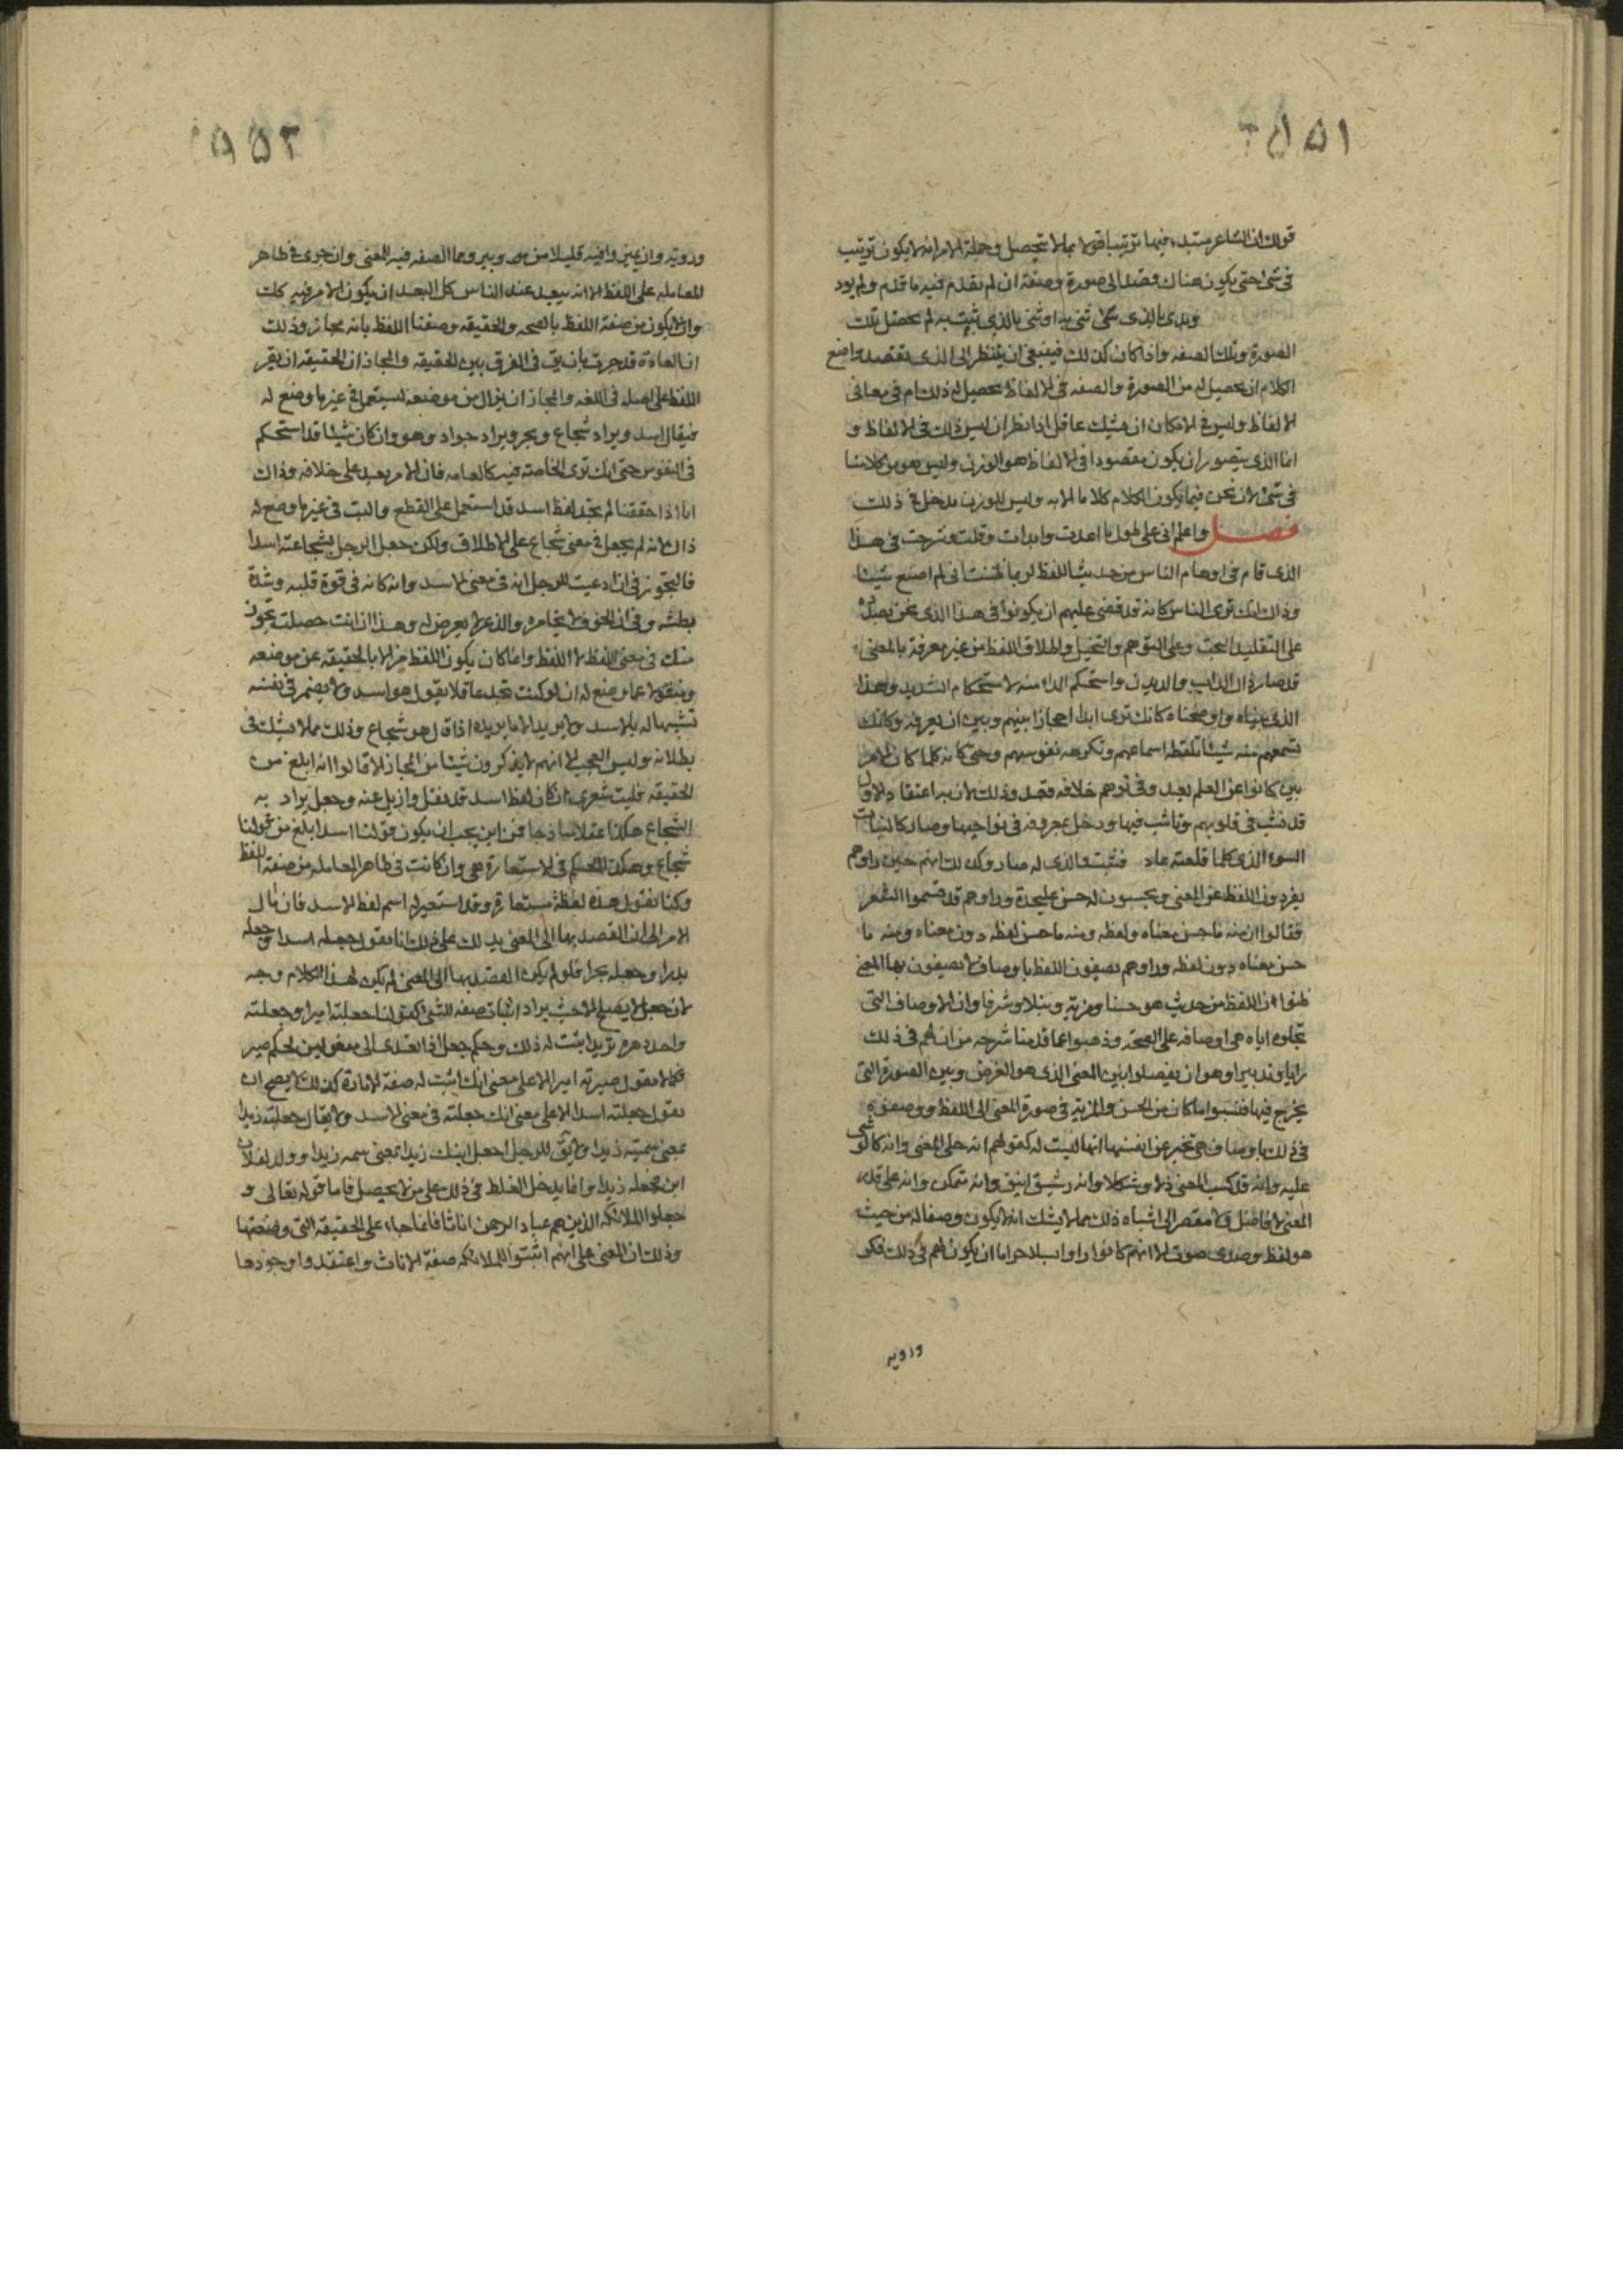 ١٥٥
قولك ان الشاعر مبتدء فيهما ترتيبا قولا بما لا يتحصل وجملة الامر انه لا يكون ترتيب
فى شئ حتى يكون هناك قصد الى صورة وصفة ان لم يقدم فيه ما قدم ولم يود
وبدى بالذى ثنى به او ثنى بالذى ثلث به لم تحصل تلك
الصورة وتلك الصفه واذا كان كذلك فينبغى ان ينظر الى الذى يقصد واضع
الكلام ان يحصل له من الصورة والصفه فى الالفاظ يحصل له ذلك ام فى معانى
الالفاظ وليس فى الامكان ان يشك عاقل اذا نظر ان ليس ذلك فى الالفاظ و
انما الذى يتصور ان يكون مقصودا فى الالفاظ هو الوزن وليس هو من كلامنا
فى شئ لان نحن فيما يكون الكلام كلاما الا به وليس للوزن مدخل فى ذلك
فصل واعلم انى على طول ما اعدت وابدات وقلت وشرحت فى هذا
الذى قام فى اوهام الناس من حديث اللفظ لربما ظننت انى لم اصنع شيئا
وذاك انك ترى الناس كانه قد قضى عليهم ان يكونوا فى هذا الذى نحن بصدده
على التقليد البحت وعلى التوهم والتخيل واطلاق اللفظ من غير معرفة بالمعنى
قد صار ذاك الداب والديدن واستحكم الداء منه الاستحكام الشديد وهذا
الذى بيناه واوضحناه كانك ترى ابدا حجازا بينهم وبين ان يعرفوه وكانك
تسمعهم منه شيئا تلفظه اسماعهم وتنكره نفوسهم وحتى كانه كلما كان الامر
بين كانوا عن العلم به بعد وفى توهم خلافه قعد وذلك لان به اعتقادا الاول
قد نشب فى قلوبهم وتاشب فيها ودخل بعروقه فى نواحيها وصار كالنبات
السوء الذى كلما قلعته عاد فنبت والذى له صار وكذلك انهم حين راوهم
يفردون اللفظ عن المعنى ويحسبون له حسن عليحدة وراوهم قد قسموا الشعر
فقالوا ان منه ما حسن معناه ولفظه ومنه ما حسن لفظه دون معناه ومنه ما
حسن معناه دون لفظه وراوهم يصفون اللفظ باوصاف لا يصفون بها المعنى
ظنوا ان اللفظ من حديث هو حسنا ومزية ونبلا وشرفا وان الاوصاف التى
نحلوه اياه هى اوصافه على الصحة وذهبوا عما قدمنا شرحه من ان لهم فى ذلك
رايا وتدبيرا وهو ان يفصلوا بين المعنى الذى هو الغرض وبين الصورة التى
يخرج فيها فنسبوا ما كان من الحسن والمزية فى صورة المعنى الى اللفظ ووصفوه
فى ذلك باوصاف هى تخبر عن انفسها انها ليست له كقولهم انه حلى المعنى وانه كالوشى
عليه وانه قد كسب المعنى دلا وشكلا وانه رشيق انيق وانه متمكن وانه على قدر
المعنى لا فاضل ولا مقصر الى اشباه ذلك مما لا يشك انه لا يكون وصفا له من حيث
هو لفظ وصدى صوت الا انهم كانوا راوا بسلا حراما ان يكون لهم فى ذلك فكر
وروية
٥٥٢
وروية وان يميزوا فيه قليلا من دبير ومما الصفه فيه للمعنى وان جرى فى ظاهر
المعامله على اللفظ الا انه يبعد عند الناس كل البعد ان يكون الامر فيه كذلك
وان لا يكون من صفة اللفظ بالصحه والحقيقه وصفنا اللفظ بانه مجاز وذلك
ان العادة قد جرت بان يق فى الفرق بين الحقيقه والمجاز ان الحقيقه ان يقر
اللفظ على اصله فى اللغه والمجاز ان يزال من موضعه ليستعمل فى غير ما وضع له
فيقال اسد ويراد شجاع وبحر ويراد جواد وهو وان كان شيئا قد استحكم
فى النفوس حتى انك ترى الخاصة فيه كالعامه فان الامر بعد على خلافه وذاك
انا اذا حققنا لم نجد لفظ اسد قد استعمل على القطع والبت فى غير ما وضع له
ذاك لانه لم يجعل فى معنى شجاع على الاطلاق ولكن جعل الرجل بشجاعته اسدا
فالتجوز فى ان ادعيت للرجل انه فى معنى الاسد وانه كانه فى قوة قلبه وشدة
بطشه وفى ان الخوف لا يخامره والذعر لا يعرض له وهذا ان انت حصلت تجوز
منك فى معنى اللفظ لا اللفظ وانما كان يكون اللفظ مزالا بالحقيقه عن موضعه
ومنقولا عما وضع له ان لو كنت تجد عاقلا يقول هو اسد ولا يضمر فى نفسه
تشبيها له بالاسد ولا يريد الا ما يريده اذا قال هو شجاع وذلك مما لا يشك فى
بطلانه وليس العجب الا انهم لا يذكرون شيئا من المجاز الا قالوا انه ابلغ من
الحقيقه فليت شعرى ان كان لفظ اسد قد نقل وازيل عنه وجعل يراد به
الشجاع هكذا عقلا ساذجا فمن اين يجب ان يكون قولنا اسد ابلغ من قولنا
شجاع وهكذا الحكم فى الاستعارة هى وان كانت فى ظاهر المعامله من صفة اللفظ
وكنا نقول هذه لفظة مستعارة وقد استعير له اسم لفظ الاسد فان مال
الامر الى ان القصد بها الى المعنى يدلك على ذلك انا نقول جعله اسدا وجعله
بدرا وجعله بحرا فلو لم يكن القصد بها الى المعنى لم يكن لهذا الكلام وجه
لان جعل لا يصلح الا حيث يراد اثبات صفه للشئ كقولنا جعلته اميرا وجعلته
واحد دهره تريد اثبت له ذلك وحكم جعل اذا تعدى الى مفعولين حكم صير
فكما لا نقول صيرته اميرا الا على معنى انك اثبت له صفة الامارة كذلك لا يصح ان
نقول جعلته اسدا الا على معنى انك جعلته فى معنى الاسد ولا يقال جعلته زيدا
بمعنى سميته زيدا ولا يق للرجل اجعل ابنك زيدا بمعنى سمه زيدا وولد لفلان
ابن فجعله زيدا وانما يدخل الغلط فى ذلك على من لا يحصل فاما قوله تعالى و
جعلوا الملائكه الذين هم عباد الرحمن اناثا فانما جاء على الحقيقه التى وصفتها
وذلك ان المعنى على انهم اثبتوا للملائكه صفة الاناث واعتقدوا وجودها